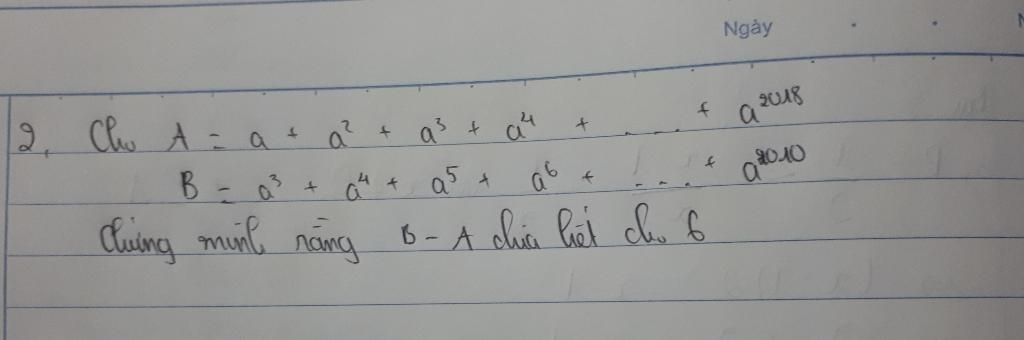 Ngày
2, Cho A = a + a² + a³ + a⁴ + .... + a²⁰¹⁸
B = a³ + a⁴ + a⁵ + a⁶ + .... + a²⁰¹⁰
Chứng minh rằng B - A chia hết cho 6